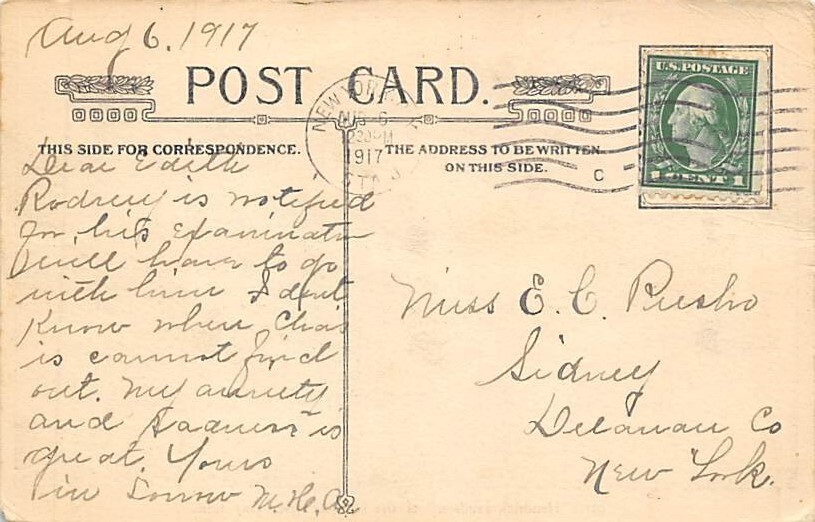 Aug 6. 1917
POST CARD.
NEW YORK, N.Y.
AUG 6
230PM
1917
STA.
U.S. POSTAGE
1 CENT 1
C
THIS SIDE FOR CORRESPONDENCE.
THE ADDRESS TO BE WRITTEN
ON THIS SIDE.
Dear Edith
Rodney is notified
for his Examination
will have to go
with him I dont
Know when Chas
is cannot find
out. My anxiety
and Sadness is
great. Yours
in Sorrow M.H.
Miss E. C. Rusho
Sidney
Delaware Co
New York.